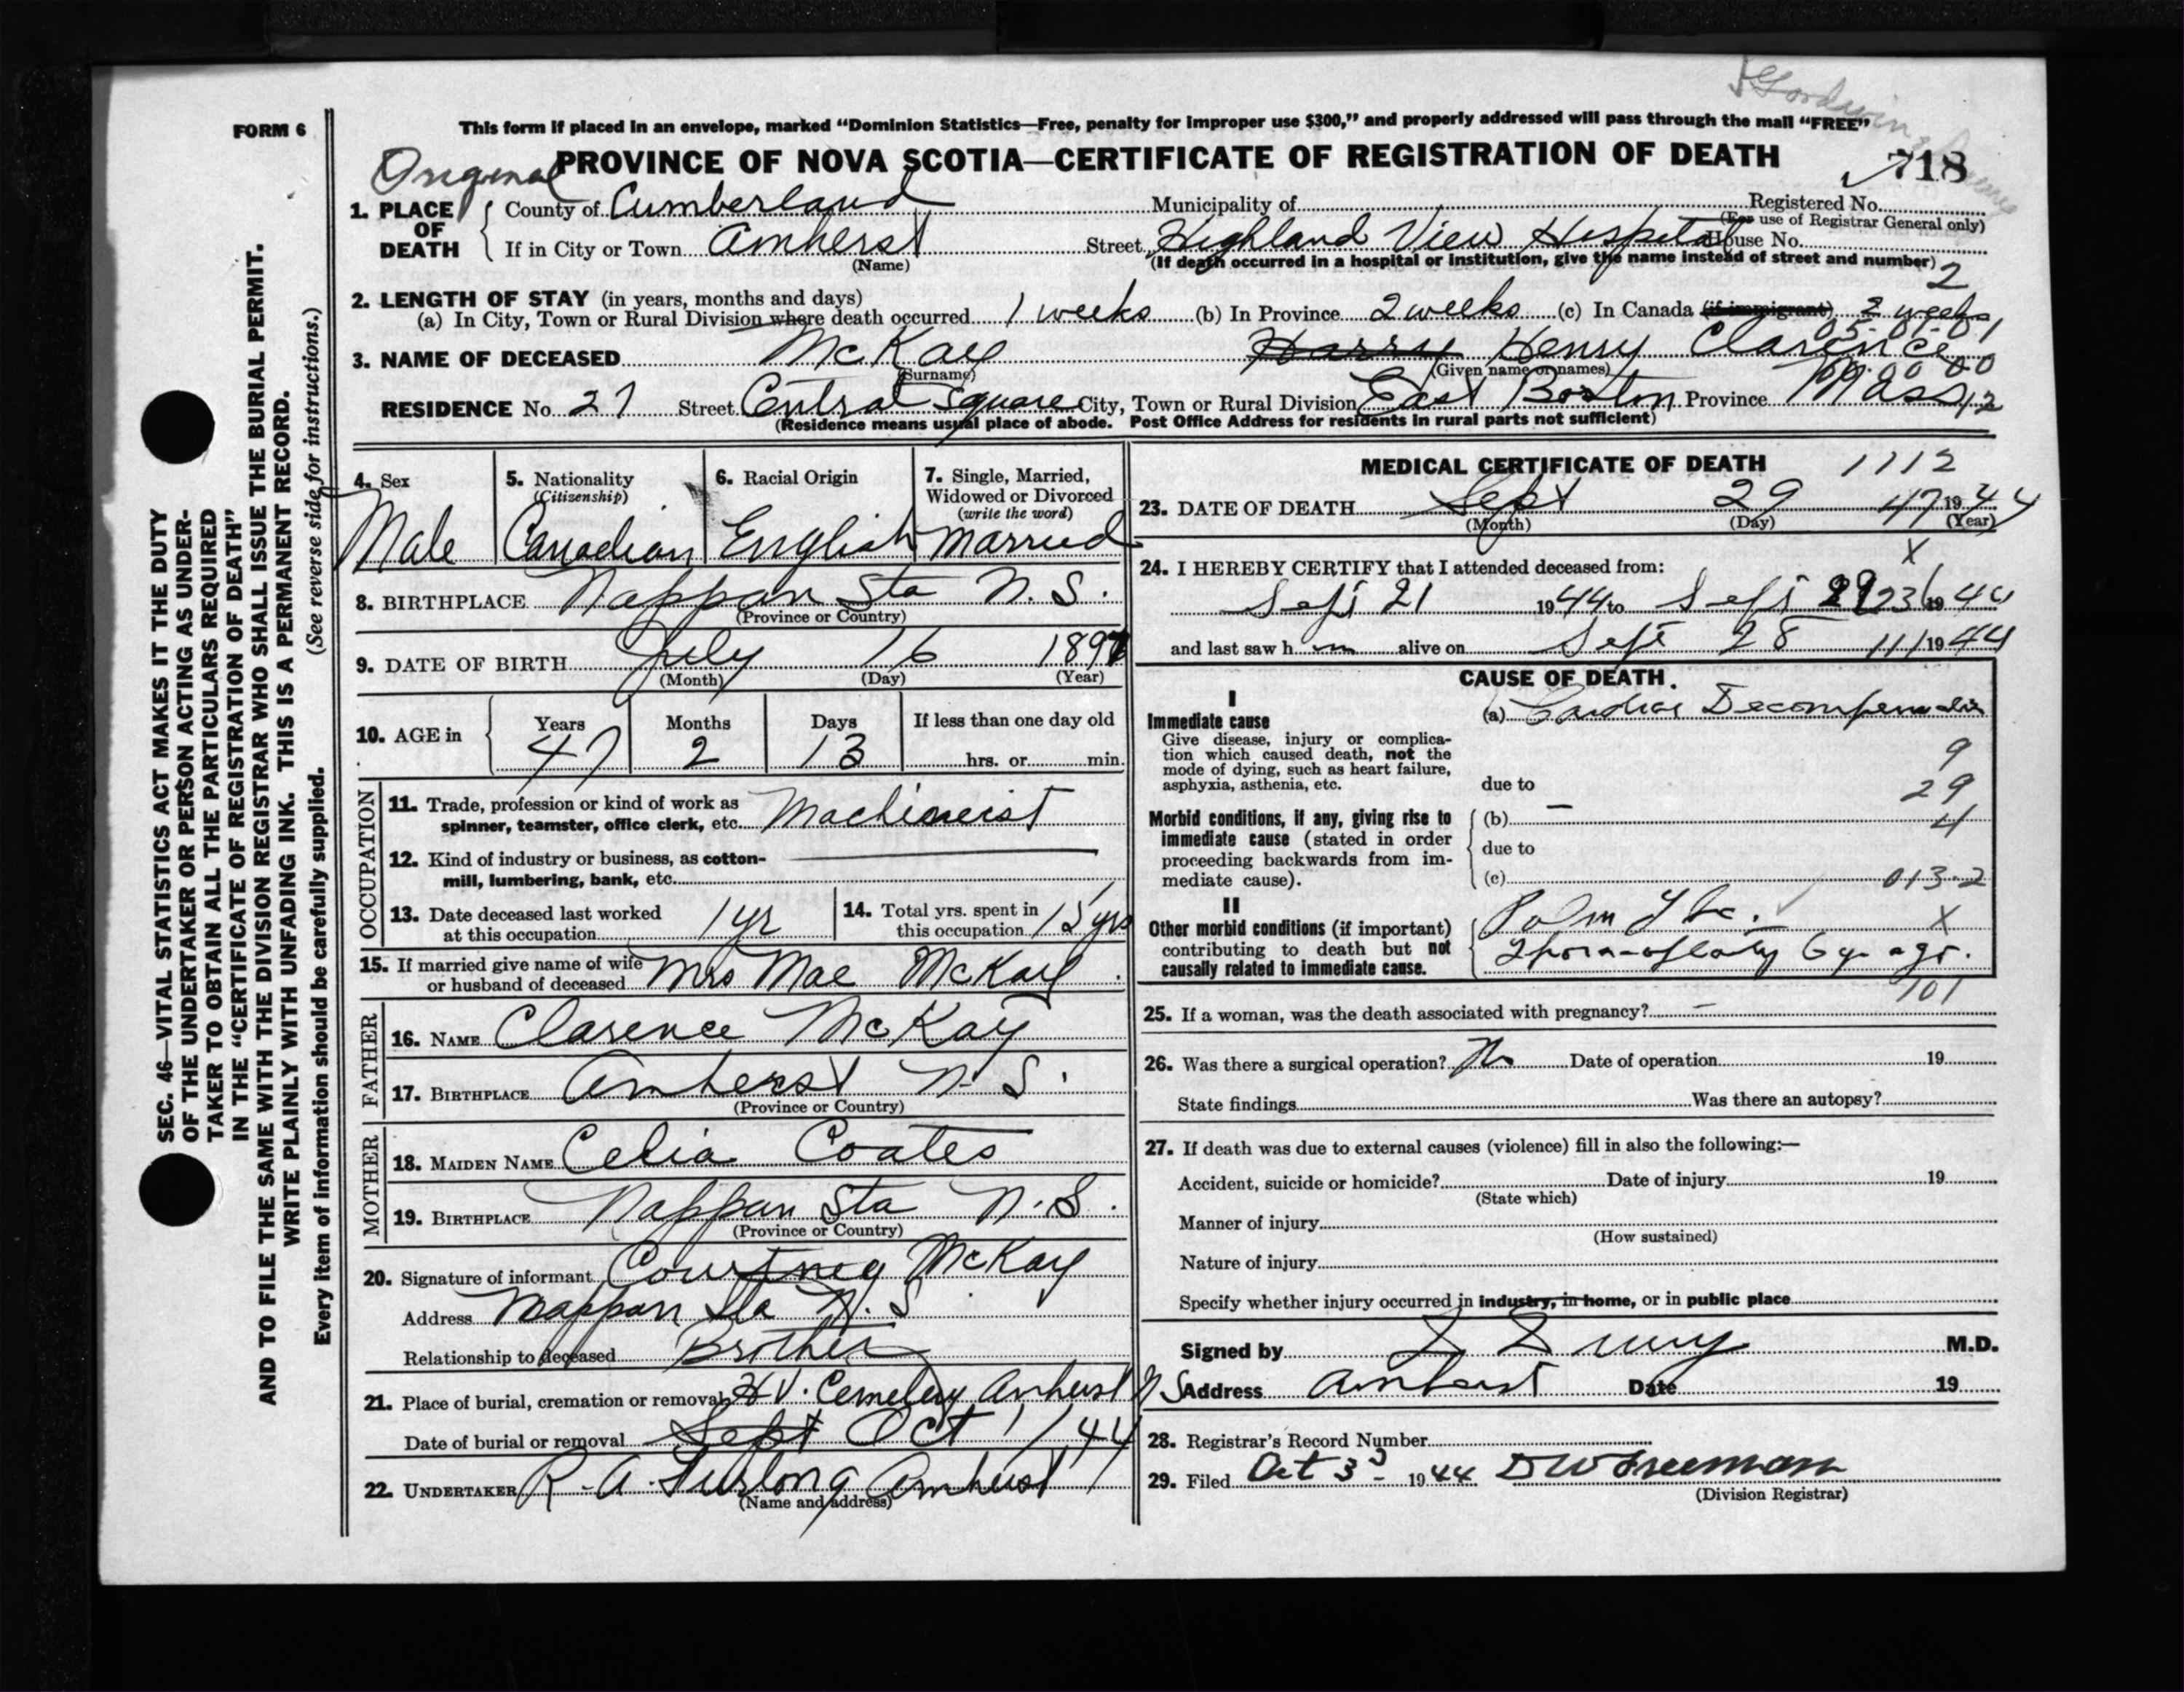 FORM 6
This form if placed in an envelope, marked "Dominion Statistics—Free, penalty for improper use $300," and properly addressed will pass through the mail "FREE"
Original
PROVINCE OF NOVA SCOTIA—CERTIFICATE OF REGISTRATION OF DEATH
718
1. PLACE OF DEATH
County of Cumberland Municipality of Registered No.
(For use of Registrar General only)
If in City or Town Amherst Street Highland View Hospital House No.
(Name) (If death occurred in a hospital or institution, give the name instead of street and number)
2
2. LENGTH OF STAY (in years, months and days)
(a) In City, Town or Rural Division where death occurred 1 weeks (b) In Province 2 weeks (c) In Canada (if immigrant) 2 weeks
3. NAME OF DECEASED McKay Harry Henry Clarence
(Surname) (Given name or names)
RESIDENCE No. 27 Street Central Square City, Town or Rural Division East Boston Province Mass 12
(Residence means usual place of abode. Post Office Address for residents in rural parts not sufficient)
4. Sex
Male
5. Nationality
(Citizenship)
Canadian
6. Racial Origin
English
7. Single, Married,
Widowed or Divorced
(write the word)
Married
8. BIRTHPLACE Nappan Sta N.S.
(Province or Country)
9. DATE OF BIRTH July 16 1897
(Month) (Day) (Year)
10. AGE in
Years Months Days If less than one day old
47 2 13 hrs. or min.
OCCUPATION
11. Trade, profession or kind of work as
spinner, teamster, office clerk, etc. Machineist
12. Kind of industry or business, as cotton-
mill, lumbering, bank, etc.
13. Date deceased last worked
at this occupation 1 yr
14. Total yrs. spent in
this occupation 15 yrs
15. If married give name of wife
or husband of deceased Mrs Mae McKay
FATHER
16. NAME Clarence McKay
17. BIRTHPLACE Amherst N.S.
(Province or Country)
MOTHER
18. MAIDEN NAME Celia Coates
19. BIRTHPLACE Nappan Sta N.S.
(Province or Country)
20. Signature of informant Courtney McKay
Address Nappan Sta N.S
Relationship to deceased Brother
21. Place of burial, cremation or removal H.V. Cemetery Amherst N S
Date of burial or removal Sept Oct 1/44
22. UNDERTAKER R.A. Furlong Amherst
(Name and address)
MEDICAL CERTIFICATE OF DEATH 1112
23. DATE OF DEATH Sept 29 47 1944
(Month) (Day) (Year)
X
24. I HEREBY CERTIFY that I attended deceased from:
Sept 21 1944 to Sept 29 236 1944
and last saw h im alive on Sept 28 111 1944
CAUSE OF DEATH.
I
Immediate cause
Give disease, injury or complica-
tion which caused death, not the
mode of dying, such as heart failure,
asphyxia, asthenia, etc.
(a) Cardiac Decompensation
9
due to 29
Morbid conditions, if any, giving rise to
immediate cause (stated in order
proceeding backwards from im-
mediate cause).
(b) — 4
due to
(c) 013.2
II
Other morbid conditions (if important)
contributing to death but not
causally related to immediate cause.
Pulm Tbc. X
Thoracoplasty 6 y. ago.
101
25. If a woman, was the death associated with pregnancy? –
26. Was there a surgical operation? No Date of operation 19
State findings Was there an autopsy?
27. If death was due to external causes (violence) fill in also the following:—
Accident, suicide or homicide? Date of injury 19
(State which)
Manner of injury
(How sustained)
Nature of injury
Specify whether injury occurred in industry, in home, or in public place
Signed by M.D.
Address Amherst Date 19
28. Registrar's Record Number
29. Filed Oct 3 1944 D W Freeman
(Division Registrar)
SEC. 46—VITAL STATISTICS ACT MAKES IT THE DUTY
OF THE UNDERTAKER OR PERSON ACTING AS UNDER-
TAKER TO OBTAIN ALL THE PARTICULARS REQUIRED
IN THE "CERTIFICATE OF REGISTRATION OF DEATH"
AND TO FILE THE SAME WITH THE DIVISION REGISTRAR WHO SHALL ISSUE THE BURIAL PERMIT.
WRITE PLAINLY WITH UNFADING INK. THIS IS A PERMANENT RECORD.
Every item of information should be carefully supplied. (See reverse side for instructions.)